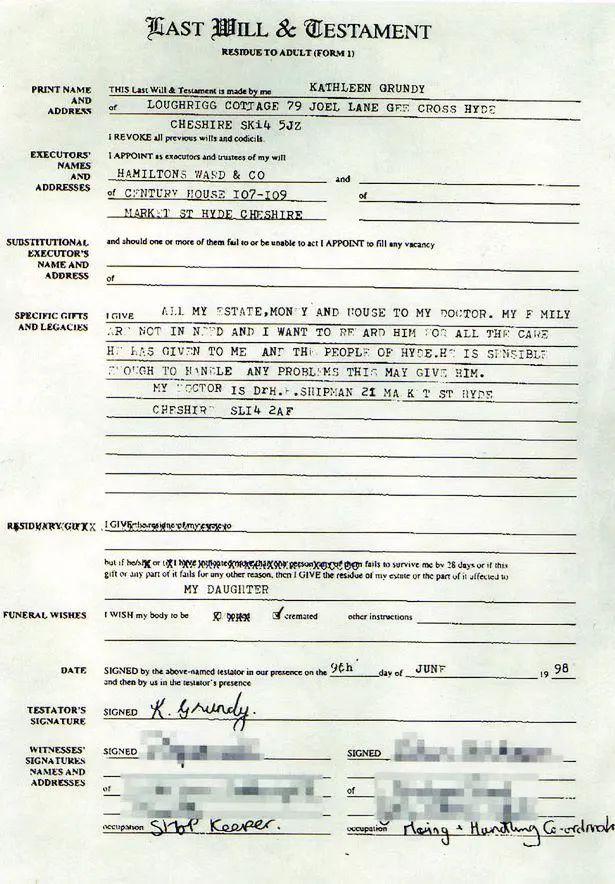 LAST WILL & TESTAMENT
RESIDUE TO ADULT (FORM 1)
PRINT NAME AND ADDRESS
THIS Last Will & Testament is made by me KATHLEEN GRUNDY
of LOUGHRIGG COTTAGE 79 JOEL LANE GEE CROSS HYDE
CHESHIRE SK14 5JZ
I REVOKE all previous wills and codicils.
EXECUTORS' NAMES AND ADDRESSES
I APPOINT as executors and trustees of my will
HAMILTONS WARD & CO and
of CENTURY HOUSE I07-I09 of
MARKET ST HYDE CHESHIRE
SUBSTITUTIONAL EXECUTOR'S NAME AND ADDRESS
and should one or more of them fail to or be unable to act I APPOINT to fill any vacancy
of
SPECIFIC GIFTS AND LEGACIES
I GIVE ALL MY ESTATE,MON Y AND HOUSE TO MY DOCTOR. MY F MILY
ARE NOT IN NEED AND I WANT TO RE ARD HIM FOR ALL THE CARE
HE HAS GIVEN TO ME AND THE PEOPLE OF HYDE.HE IS SENSIBLE
ENOUGH TO HANDLE ANY PROBLEMS THIS MAY GIVE HIM.
MY DOCTOR IS DrH.F.SHIPMAN 21 MA K T ST HYDE
CHESHIRE SLI4 2AF
RESIDUARY GIFT
I GIVE the residue of my estate to
but if he/she or
fails to survive me by 28 days or if this
gift or any part of it fails for any other reason, then I GIVE the residue of my estate or the part of it affected to
MY DAUGHTER
FUNERAL WISHES
I WISH my body to be cremated other instructions
DATE
SIGNED by the above-named testator in our presence on the 9th day of JUNE 19 98
and then by us in the testator's presence
TESTATOR'S SIGNATURE
SIGNED K. Grundy.
WITNESSES' SIGNATURES NAMES AND ADDRESSES
SIGNED SIGNED
of of
occupation SHOP KEEPER. occupation Moving + Handling Co-ordinator